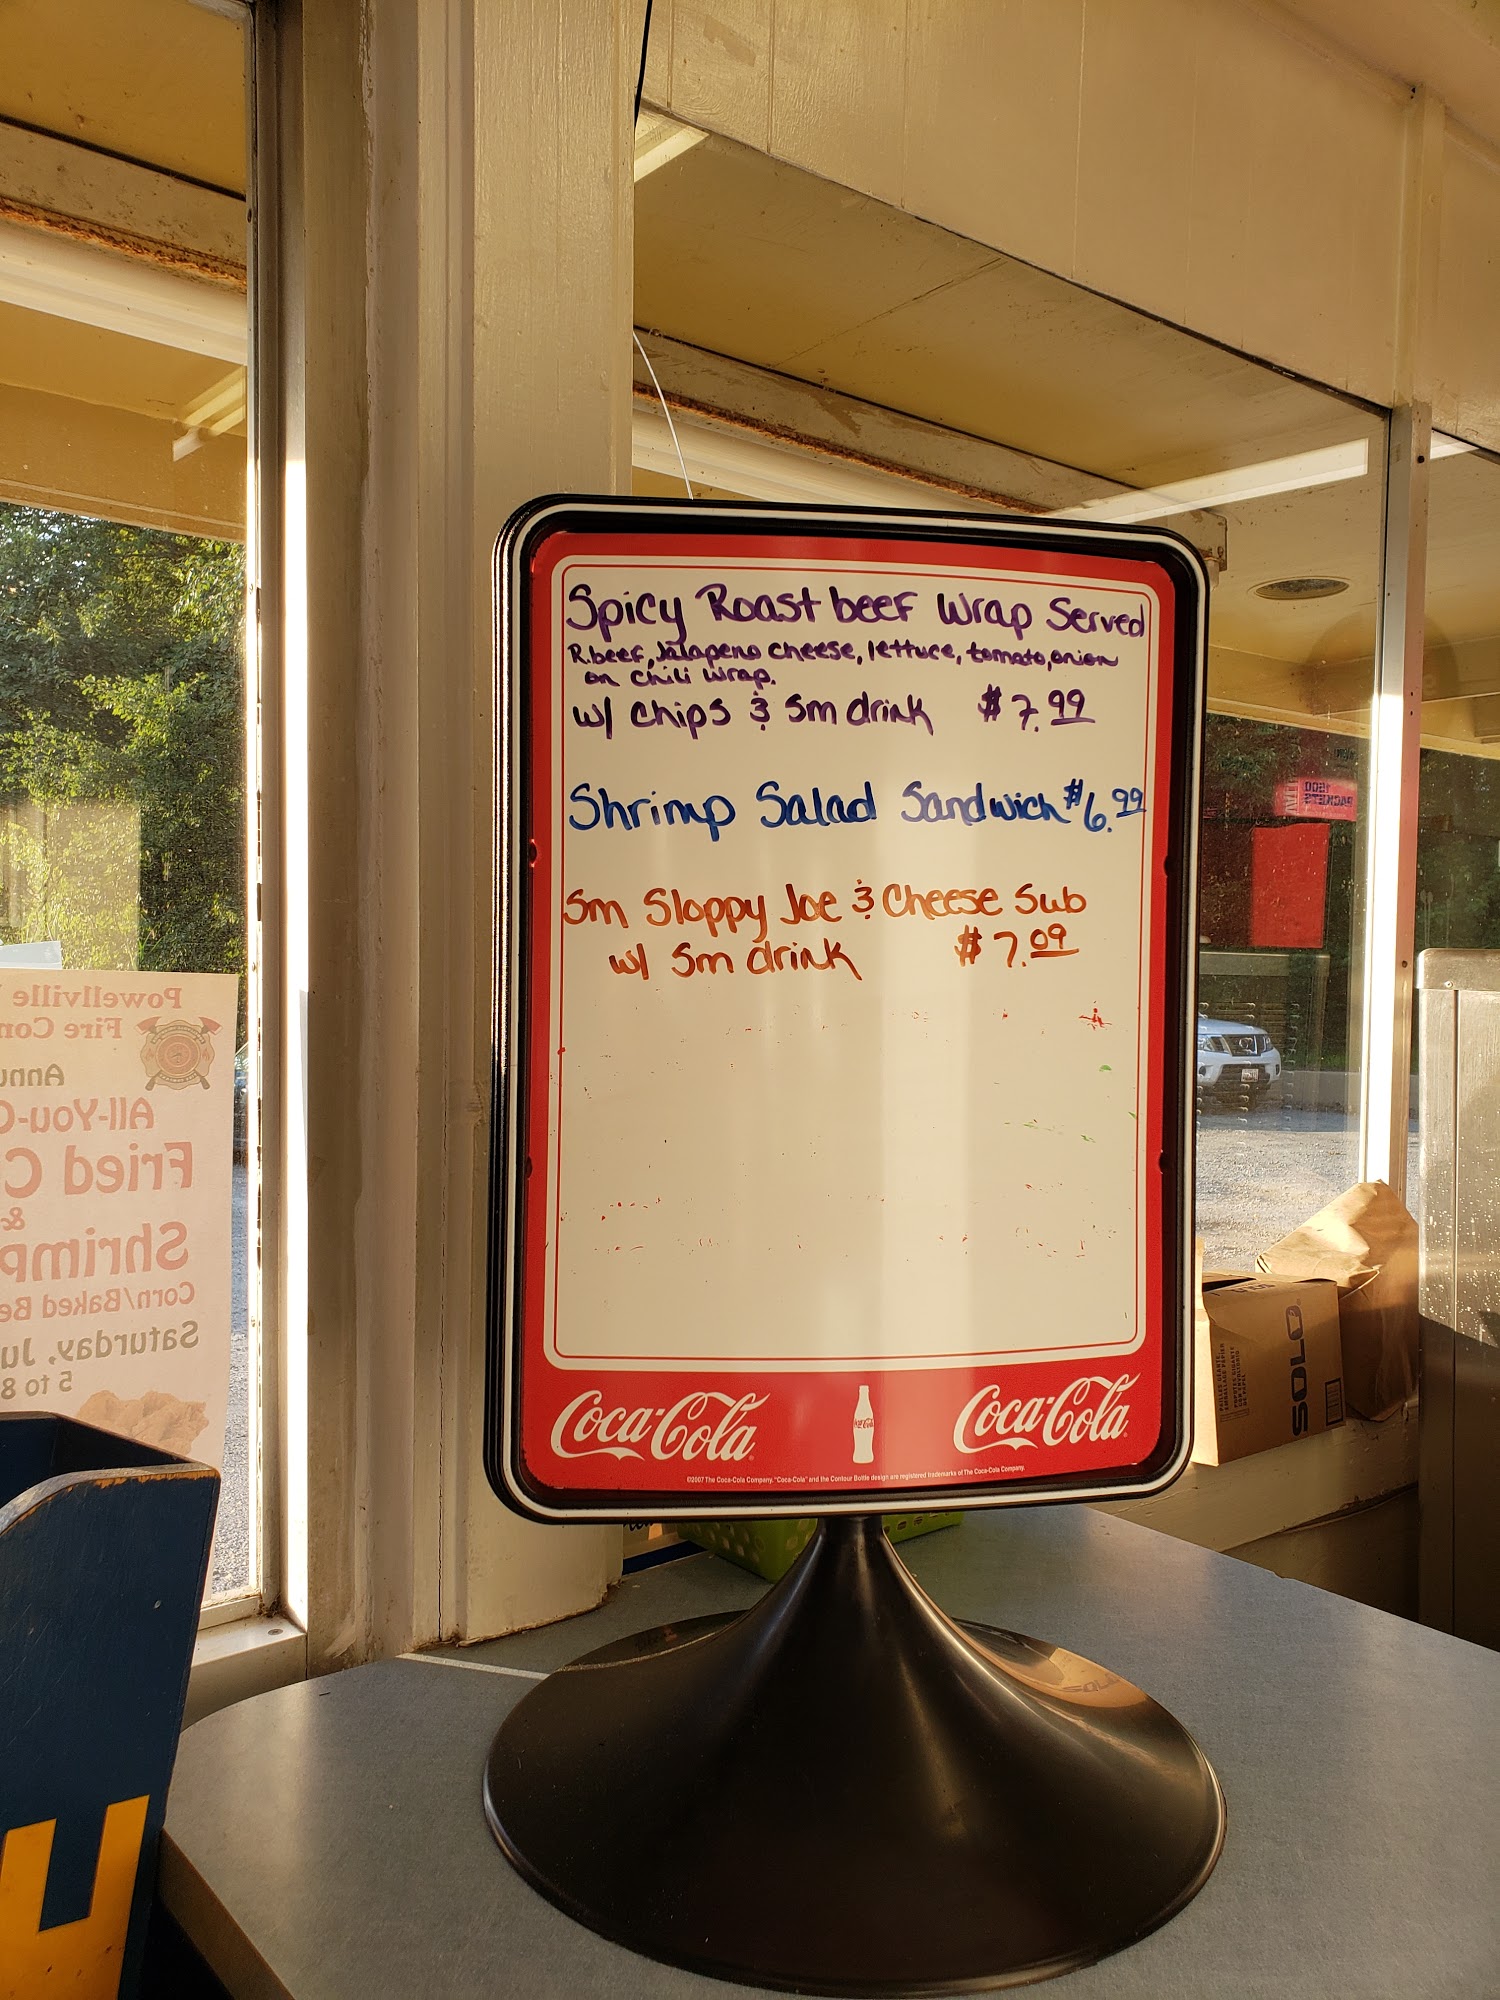 Spicy Roast beef Wrap Served
R.beef, Jalapeno cheese, lettuce, tomato, onion
on chili wrap.
w/ chips & sm drink $7.99
Shrimp Salad Sandwich $6.99
Sm Sloppy Joe & Cheese Sub
w/ sm drink $7.09
Coca-Cola
Coca-Cola
Coca-Cola
©2007 The Coca-Cola Company. "Coca-Cola" and the Contour Bottle design are registered trademarks of The Coca-Cola Company.
Powellville
Fire Com
Annu
All-You-C
Fried C
&
Shrimp
Corn/Baked Be
Saturday, Ju
5 to 8
SOLO